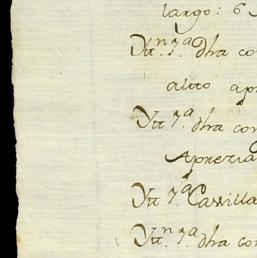 largo: 6
Ytt.n 7.a dha co
alto ap
Ytt 7.a dha con
Aprezia
Ytt 7.a Casilla
Ytt.n 7.a dha con